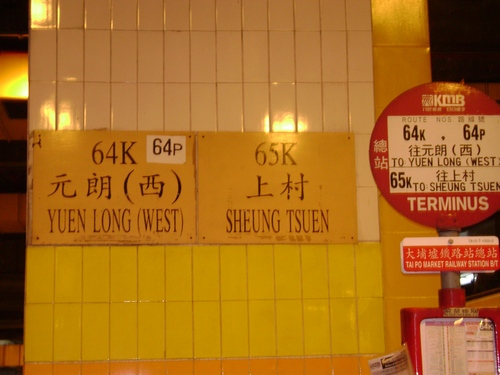 64K 64P
元朗(西)
YUEN LONG (WEST)
65K
上村
SHEUNG TSUEN
KMB
ROUTE NOS. 路線號
總站
64K . 64P
往元朗(西)
TO YUEN LONG (WEST)
65K 往上村
TO SHEUNG TSUEN
TERMINUS
大埔墟鐵路站總站
TAI PO MARKET RAILWAY STATION B/T